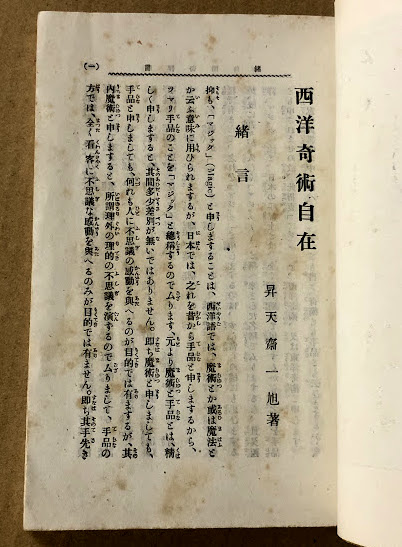 西洋奇術自在
昇天齋一旭著
緒言
抑も、「マジック」(Magic)と申しますることは、西洋語では、魔術とか或は魔法と
か云ふ意味に用ひられまするが、日本では、之れを昔から手品と申しまするから、
ツマリ手品のことを「マジック」と總稱するのでムります、元より魔術と手品とは、精
しく申しますると、其間多少差別が無いではありません。即ち魔術と申しましても、
手品と申しましても、何れも人に不思議の感動を與へるのが目的では有まするが、其
内魔術と申しますると、所謂理外の理的の不思議を演ずるのでムりまして、手品の
方では、全く看客に不思議な感動を與へるのみが目的では有ません。即ち其手先き
(一)